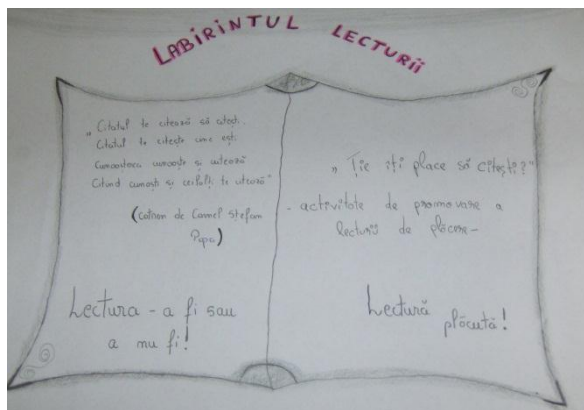 LABIRINTUL LECTURII
„Citatul te citează să citești.
Citatul te citește cine ești.
cunoaște și citează
Citind cunoști și te citează"
(Catren de Camel Ștefan
Papa)
Lectura - a fi sau
a nu fi!
„Ție îți place să citești?"
- activitate de promovare a
lecturii de plăcere -
Lectură
plăcută!